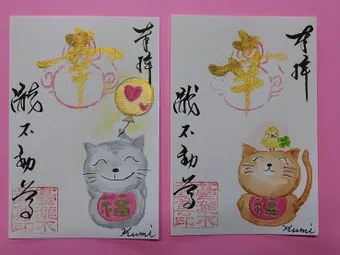 奉拝
幸
瀧不動尊
福
Numi
奉拝
幸
瀧不動尊
福
Numi